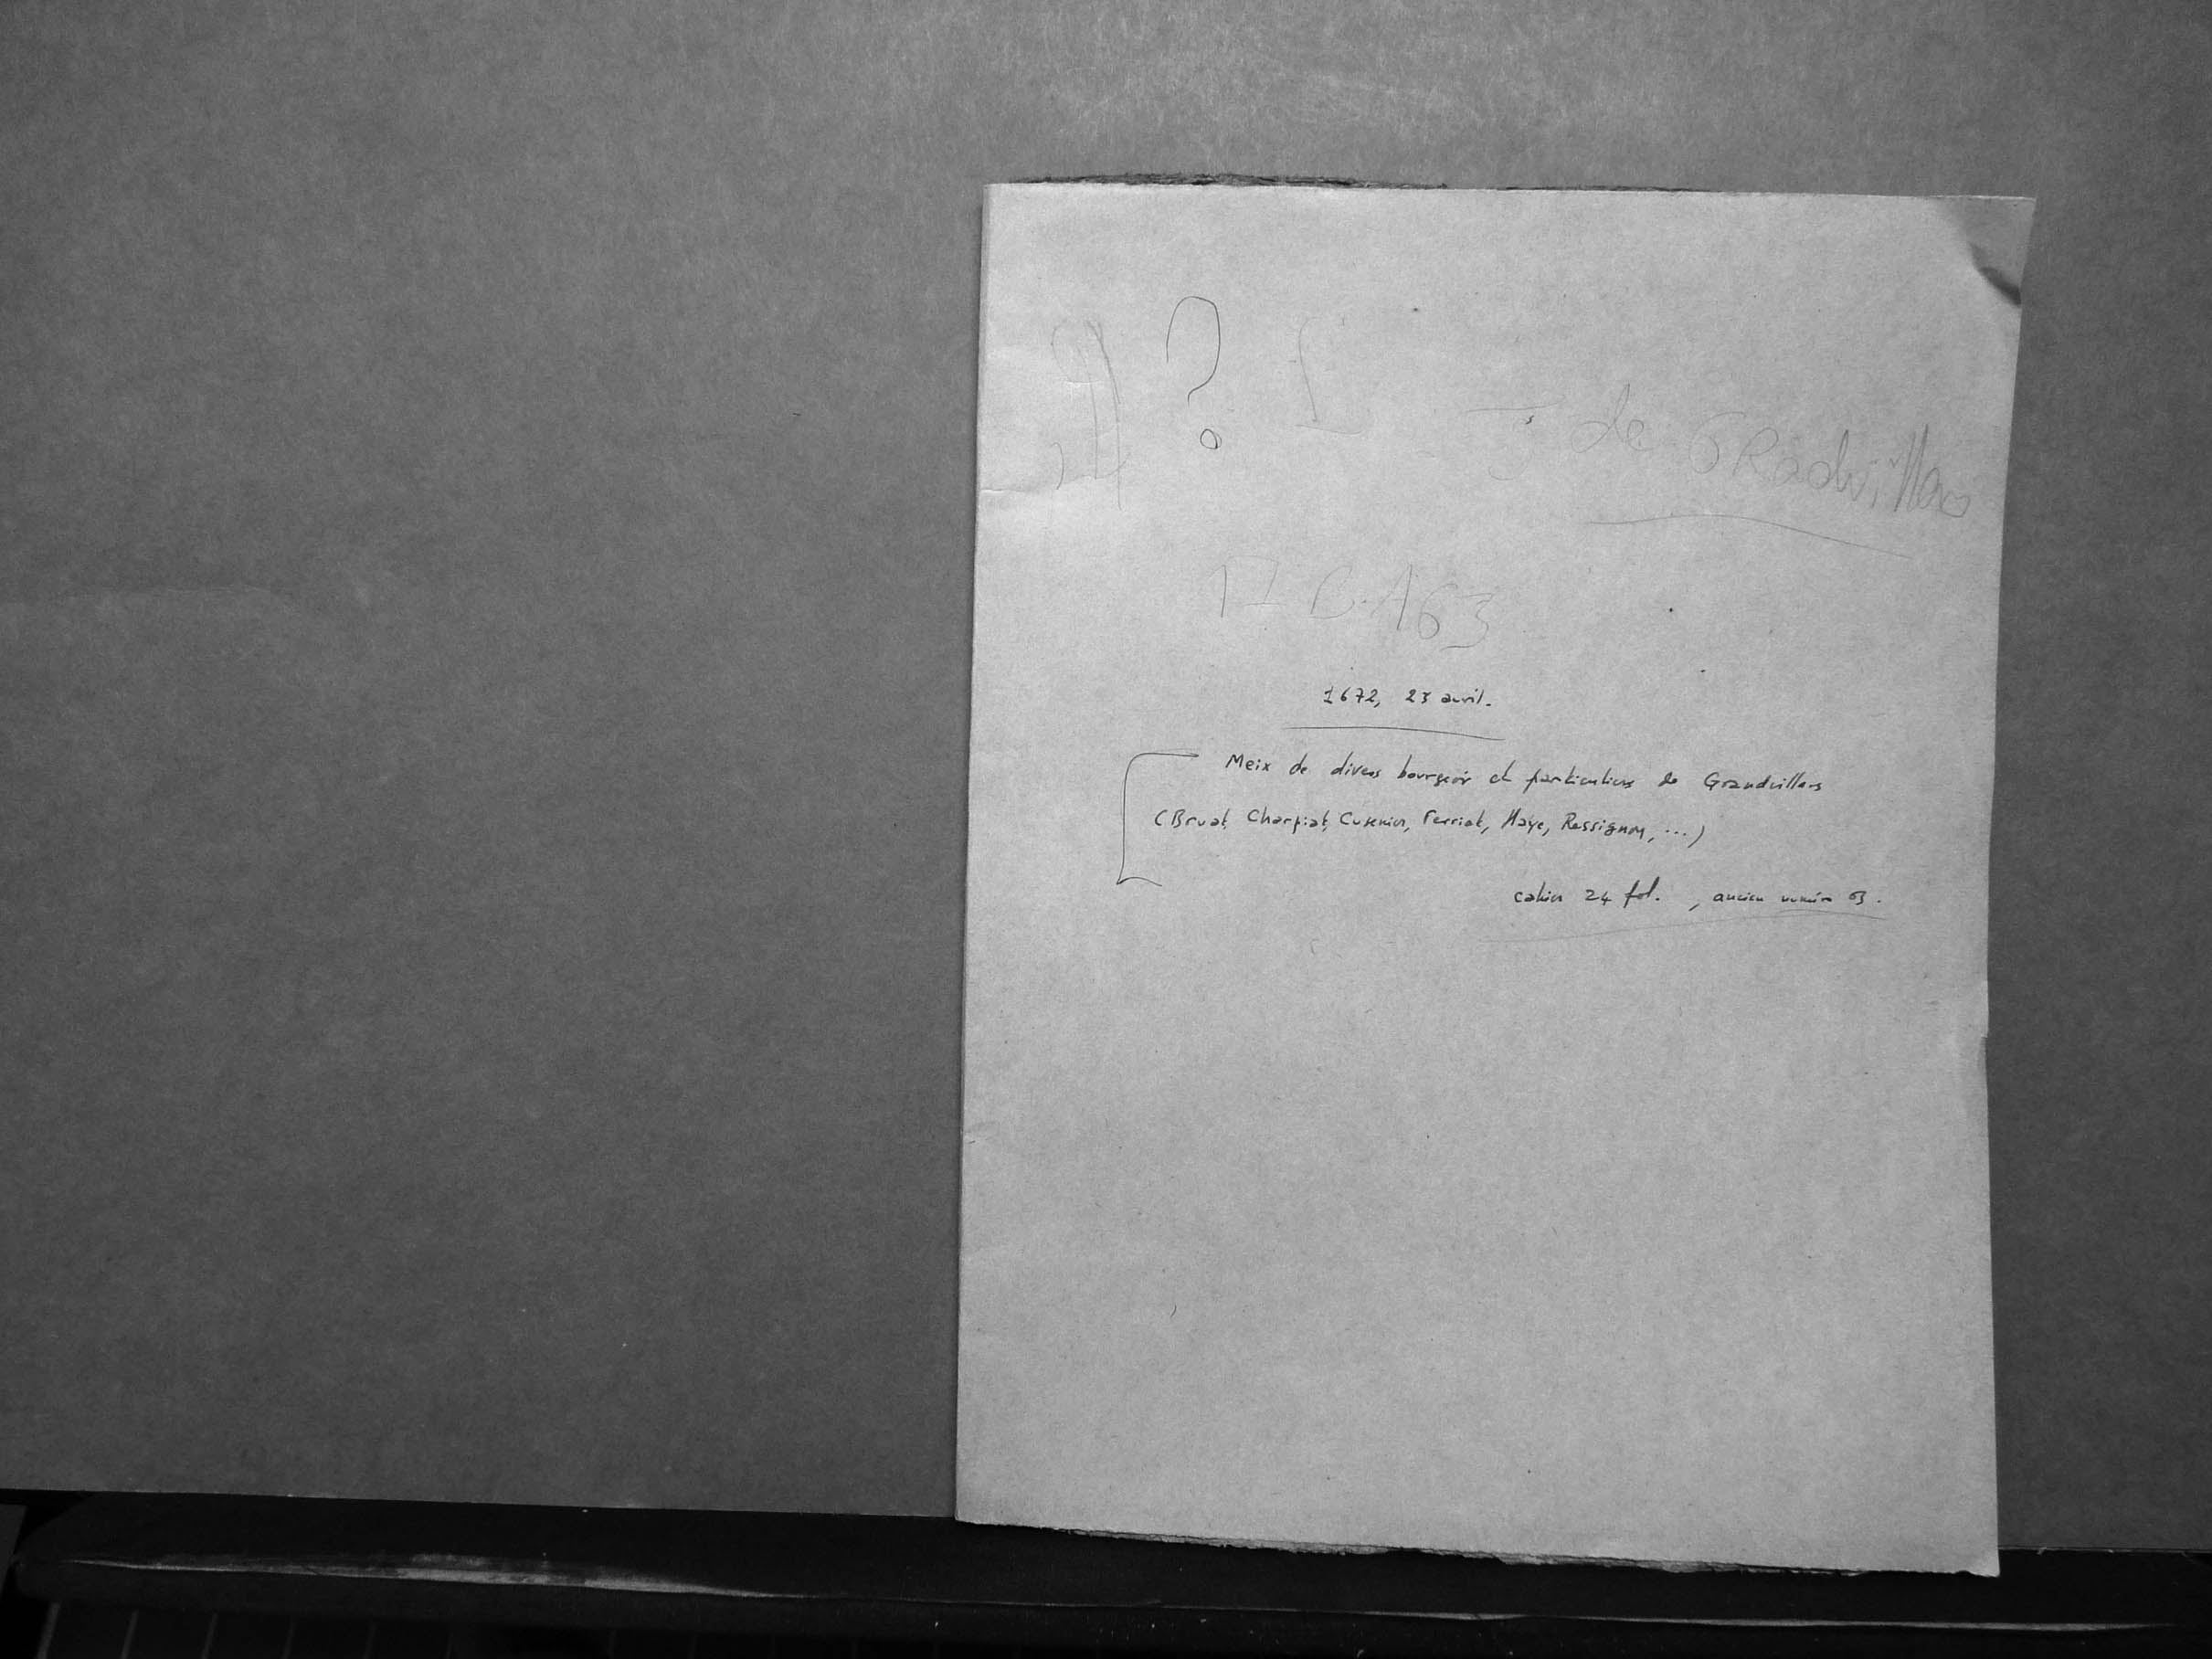 ? de GRadvillars
17 B 163
1672, 23 avril.
Meix de divers bourgeois et particuliers de Grandvillars
(Bruat, Charpiat, Cusenier, Ferriat, Haye, Rossignon, ...)
cahier 24 fol. , ancien numéro 63.